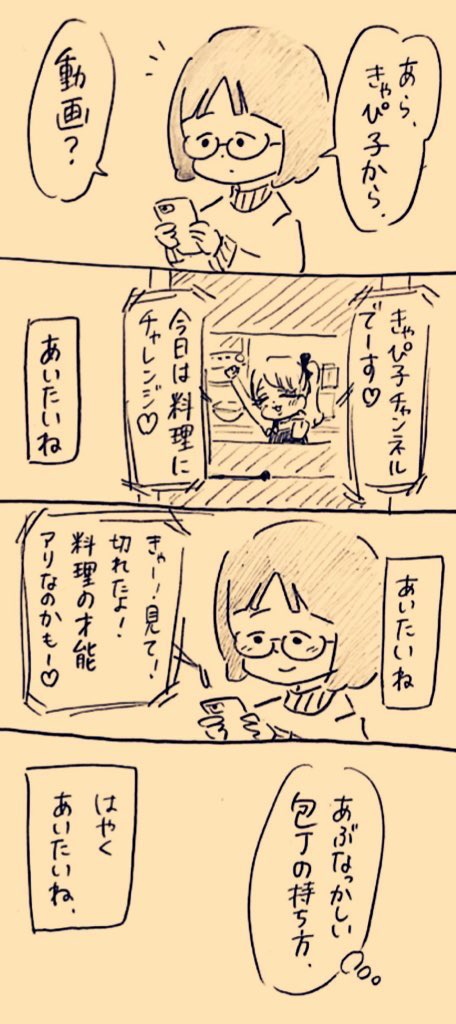 あら、
きゃぴ子から、
動画?
きゃぴ子チャンネル
でーす♡
今日は料理に
チャレンジ♡
あいたいね
あいたいね
きゃー!見て!
切れたよ!
料理の才能
アリなのかもー♡
あぶなっかしい
包丁の持ち方、
はやく
あいたいね、